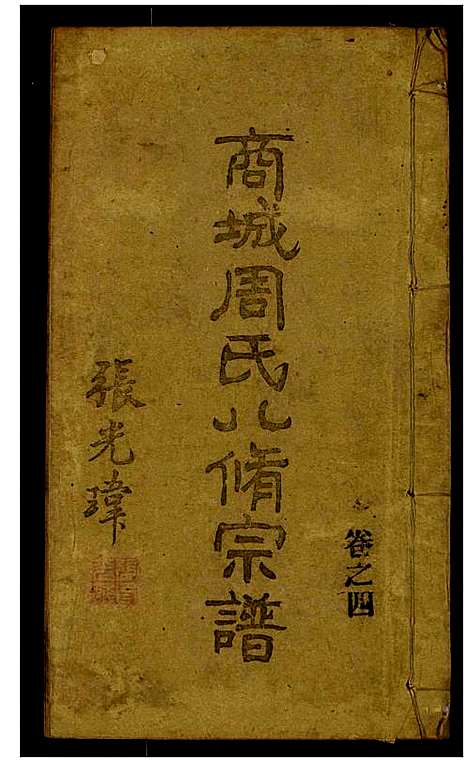 卷之四
商城周氏八脩宗譜
張光瑋